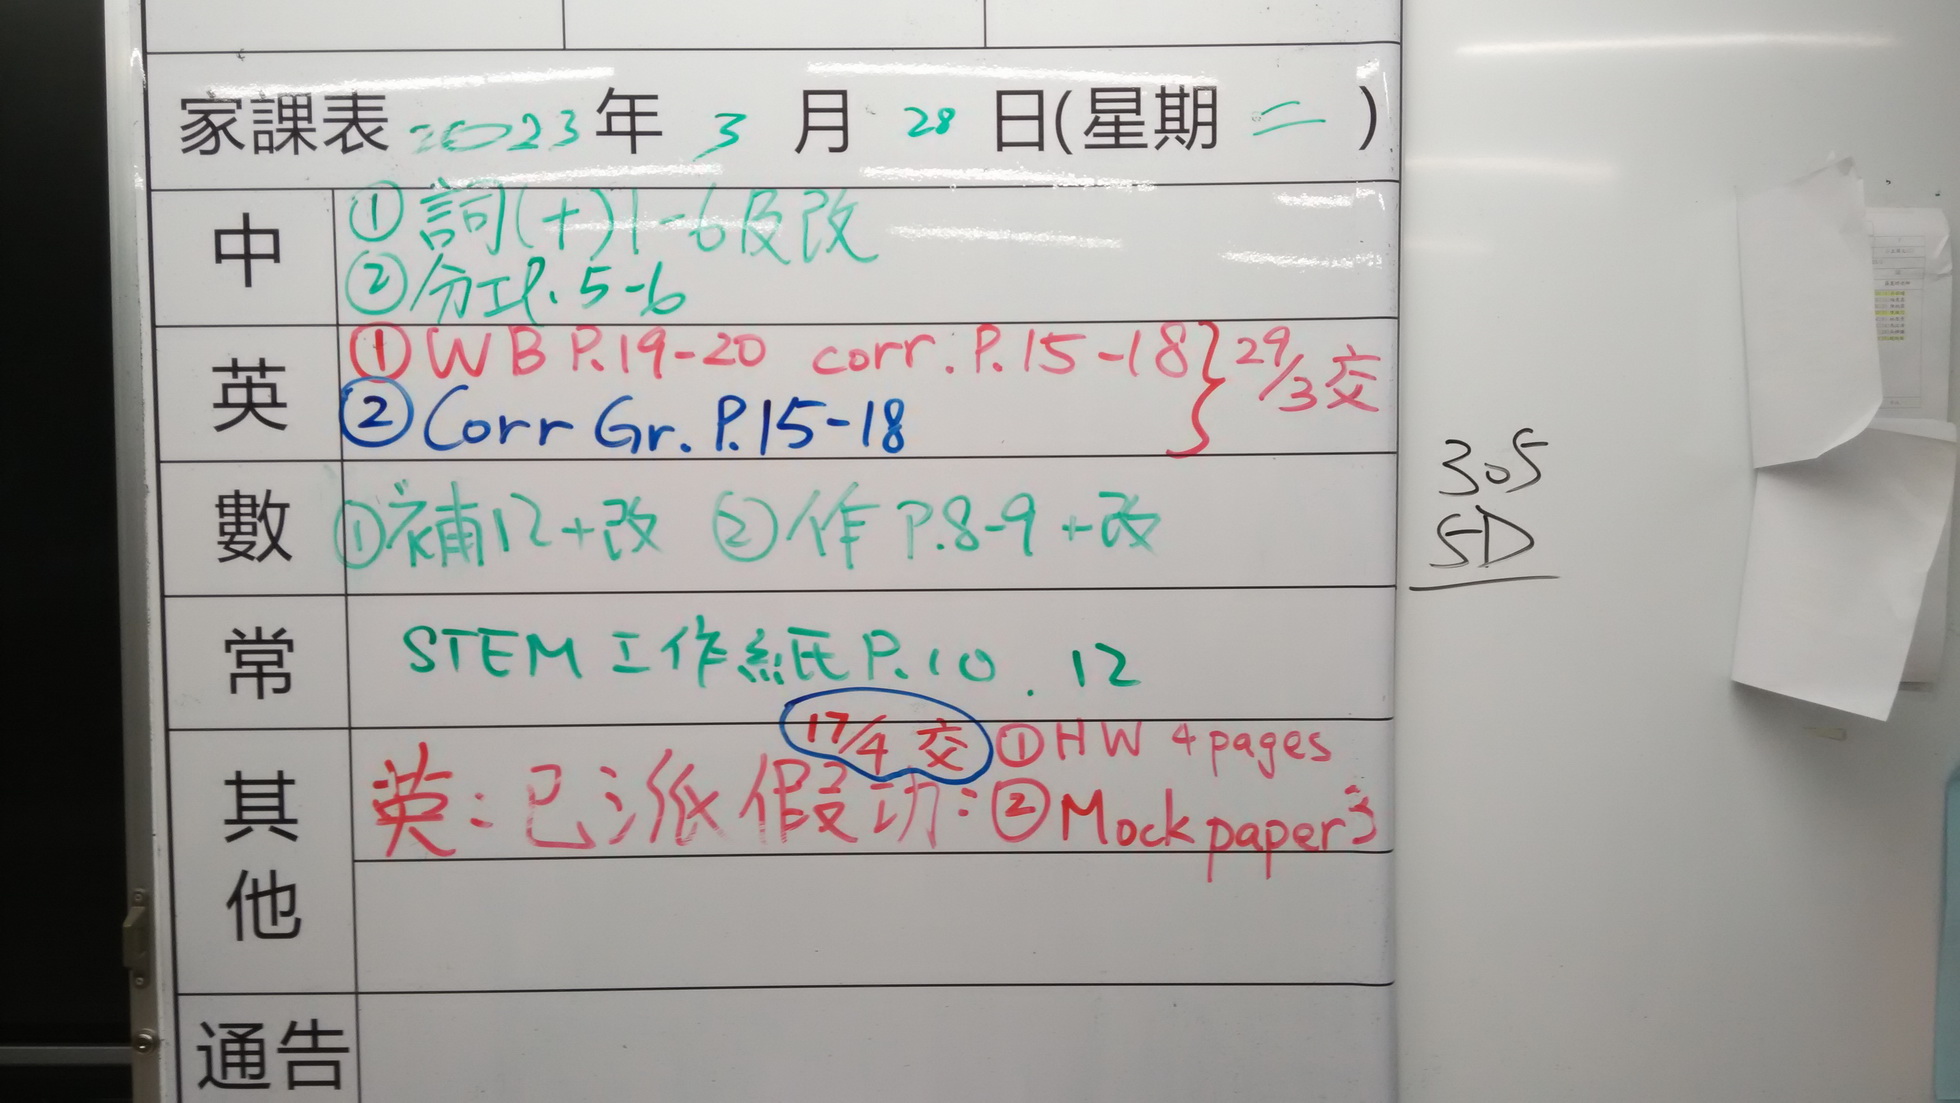 家課表 2023年 3 月 28 日(星期 二 )
中
① 詞(十)1-6及改
② 分工P. 5-6
英
① WB P.19-20 corr. P.15-18 } 29/3交
② Corr Gr. P.15-18
數
①補12+改 ②作 P.8-9 +改
常
STEM 工作紙 P.10. 12
其他
17/4 交 ① HW 4 pages
英:已派假功:② Mock paper 3
通告
305
5D